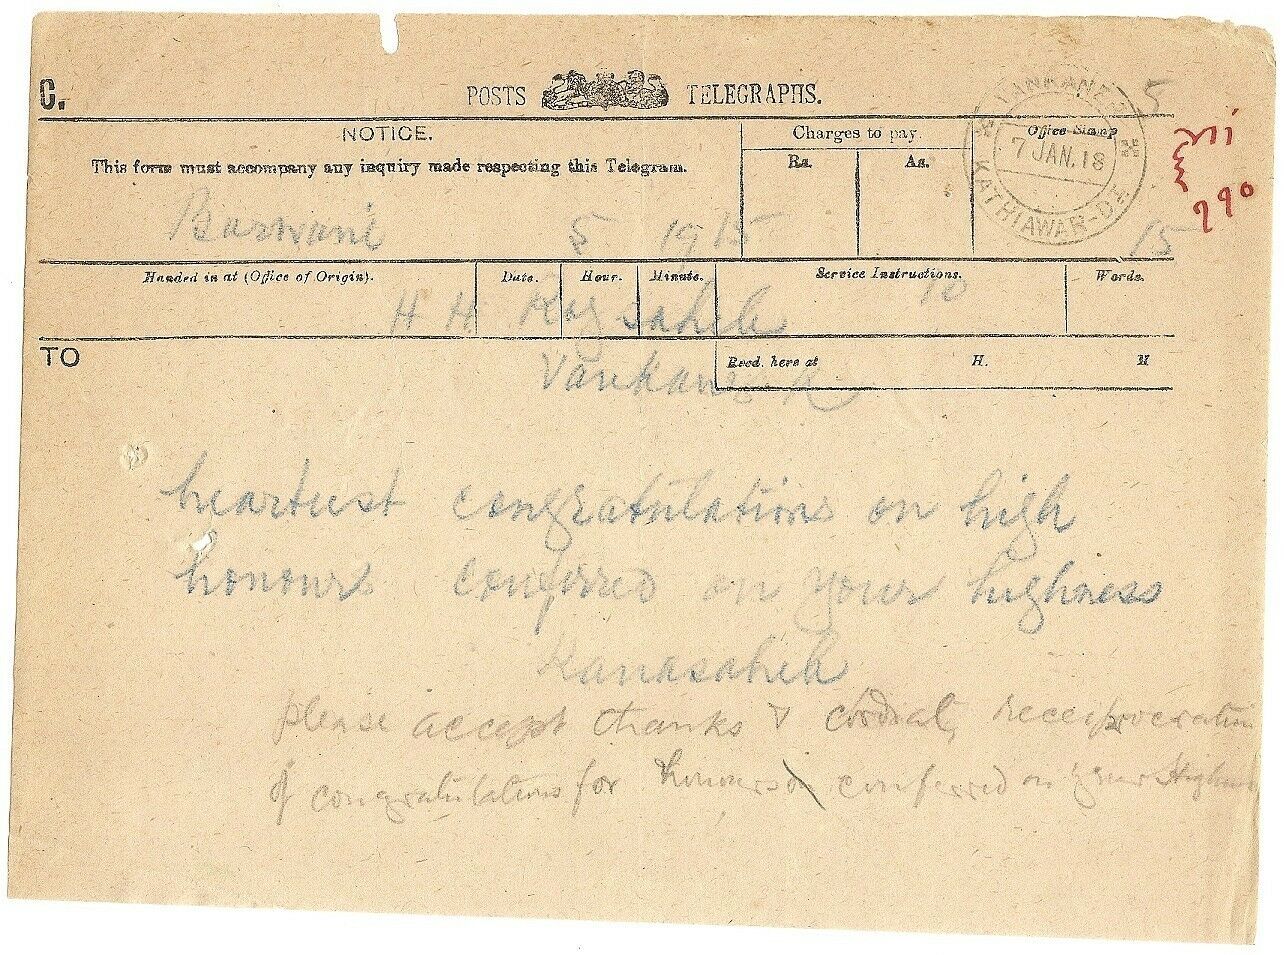 C.
POSTS TELEGRAPHS.
5
NOTICE.
This form must accompany any inquiry made respecting this Telegram.
Charges to pay.
Rs. As.
Office Stamp
VANKANER
7 JAN. 18
KATHIAWAR-D.H
990
Barwani 5 19 15 15
Handed in at (Office of Origin). Date. Hour. Minute. Service Instructions. Words.
10
H H Rajsaheb
TO
Recd. here at H. M
Vankaner
heartiest congratulations on high
honours conferred on your highness
Ranasaheb
please accept thanks & cordial receiprocration
of congratulations for honours conferred on your Highness